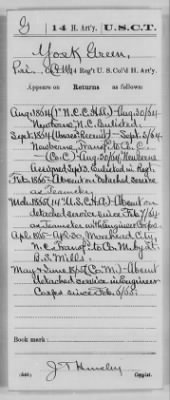 G 14 H. Art'y. U.S.C.T.
York Green,
Pvt., Co. M, 14 Reg't U. S. Col'd H. Art'y.
Appears on Returns as follows:
Aug 1864 (1" N.C.C.H.A.) Aug 30/64
Newberne N.C. Enlisted.
Sept. 1864 (Unas'd Recruit) Sept. 5/64
Newberne, Transf. to Co. C.
(Co. C) Aug. 30/64 Newberne
Assigned Sept. 5. Enlisted in Regt.
Feb. 1865 Absent on Detached Service
as Teamster
Mch. 1865 (14" U.S.C.H.A.) Absent on
detached service since Feb. 7/64
as Teamster with Engineer Corps.
Apl. 1865 Apl. 30, Morehead City,
N.C. Transf. to Co. M. by
May & June 1865 (Co. M.) Absent
Detached service in Engineer
Corps since Feb. 5/65.
Book mark:
(546) Copyist.